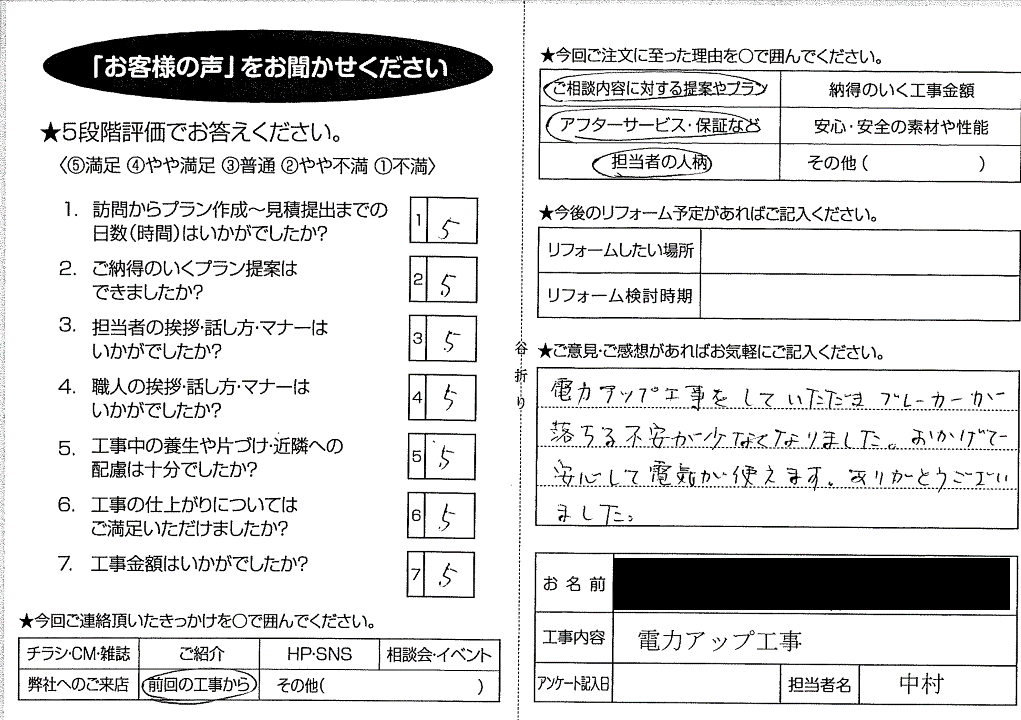 「お客様の声」をお聞かせください
★5段階評価でお答えください。
〈⑤満足 ④やや満足 ③普通 ②やや不満 ①不満〉
1. 訪問からプラン作成〜見積提出までの
日数(時間)はいかがでしたか?
1 5
2. ご納得のいくプラン提案は
できましたか?
2 5
3. 担当者の挨拶・話し方・マナーは
いかがでしたか?
3 5
4. 職人の挨拶・話し方・マナーは
いかがでしたか?
4 5
5. 工事中の養生や片づけ・近隣への
配慮は十分でしたか?
5 5
6. 工事の仕上がりについては
ご満足いただけましたか?
6 5
7. 工事金額はいかがでしたか?
7 5
★今回ご連絡頂いたきっかけを〇で囲んでください。
チラシ・CM・雑誌 ご紹介 HP・SNS 相談会・イベント
弊社へのご来店 前回の工事から その他( )
谷折り
★今回ご注文に至った理由を〇で囲んでください。
ご相談内容に対する提案やプラン 納得のいく工事金額
アフターサービス・保証など 安心・安全の素材や性能
担当者の人柄 その他( )
★今後のリフォーム予定があればご記入ください。
リフォームしたい場所
リフォーム検討時期
★ご意見・ご感想があればお気軽にご記入ください。
電力アップ工事をしていただきブレーカーが
落ちる不安が少なくなりました。おかげで
安心して電気が使えます。ありがとうござい
ました。
お名前
工事内容 電力アップ工事
アンケート記入日 担当者名 中村